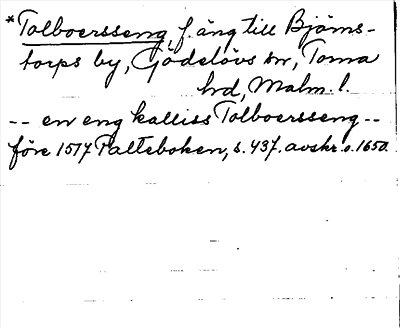 *Tolboersseng, f. äng till Björns-
torps by, Gödelövs sn, Torna
hd, Malm. l.
-- en eng kalliss Tolboersseng --
före 1517 Palteboken, s. 437. avskr. o. 1650.